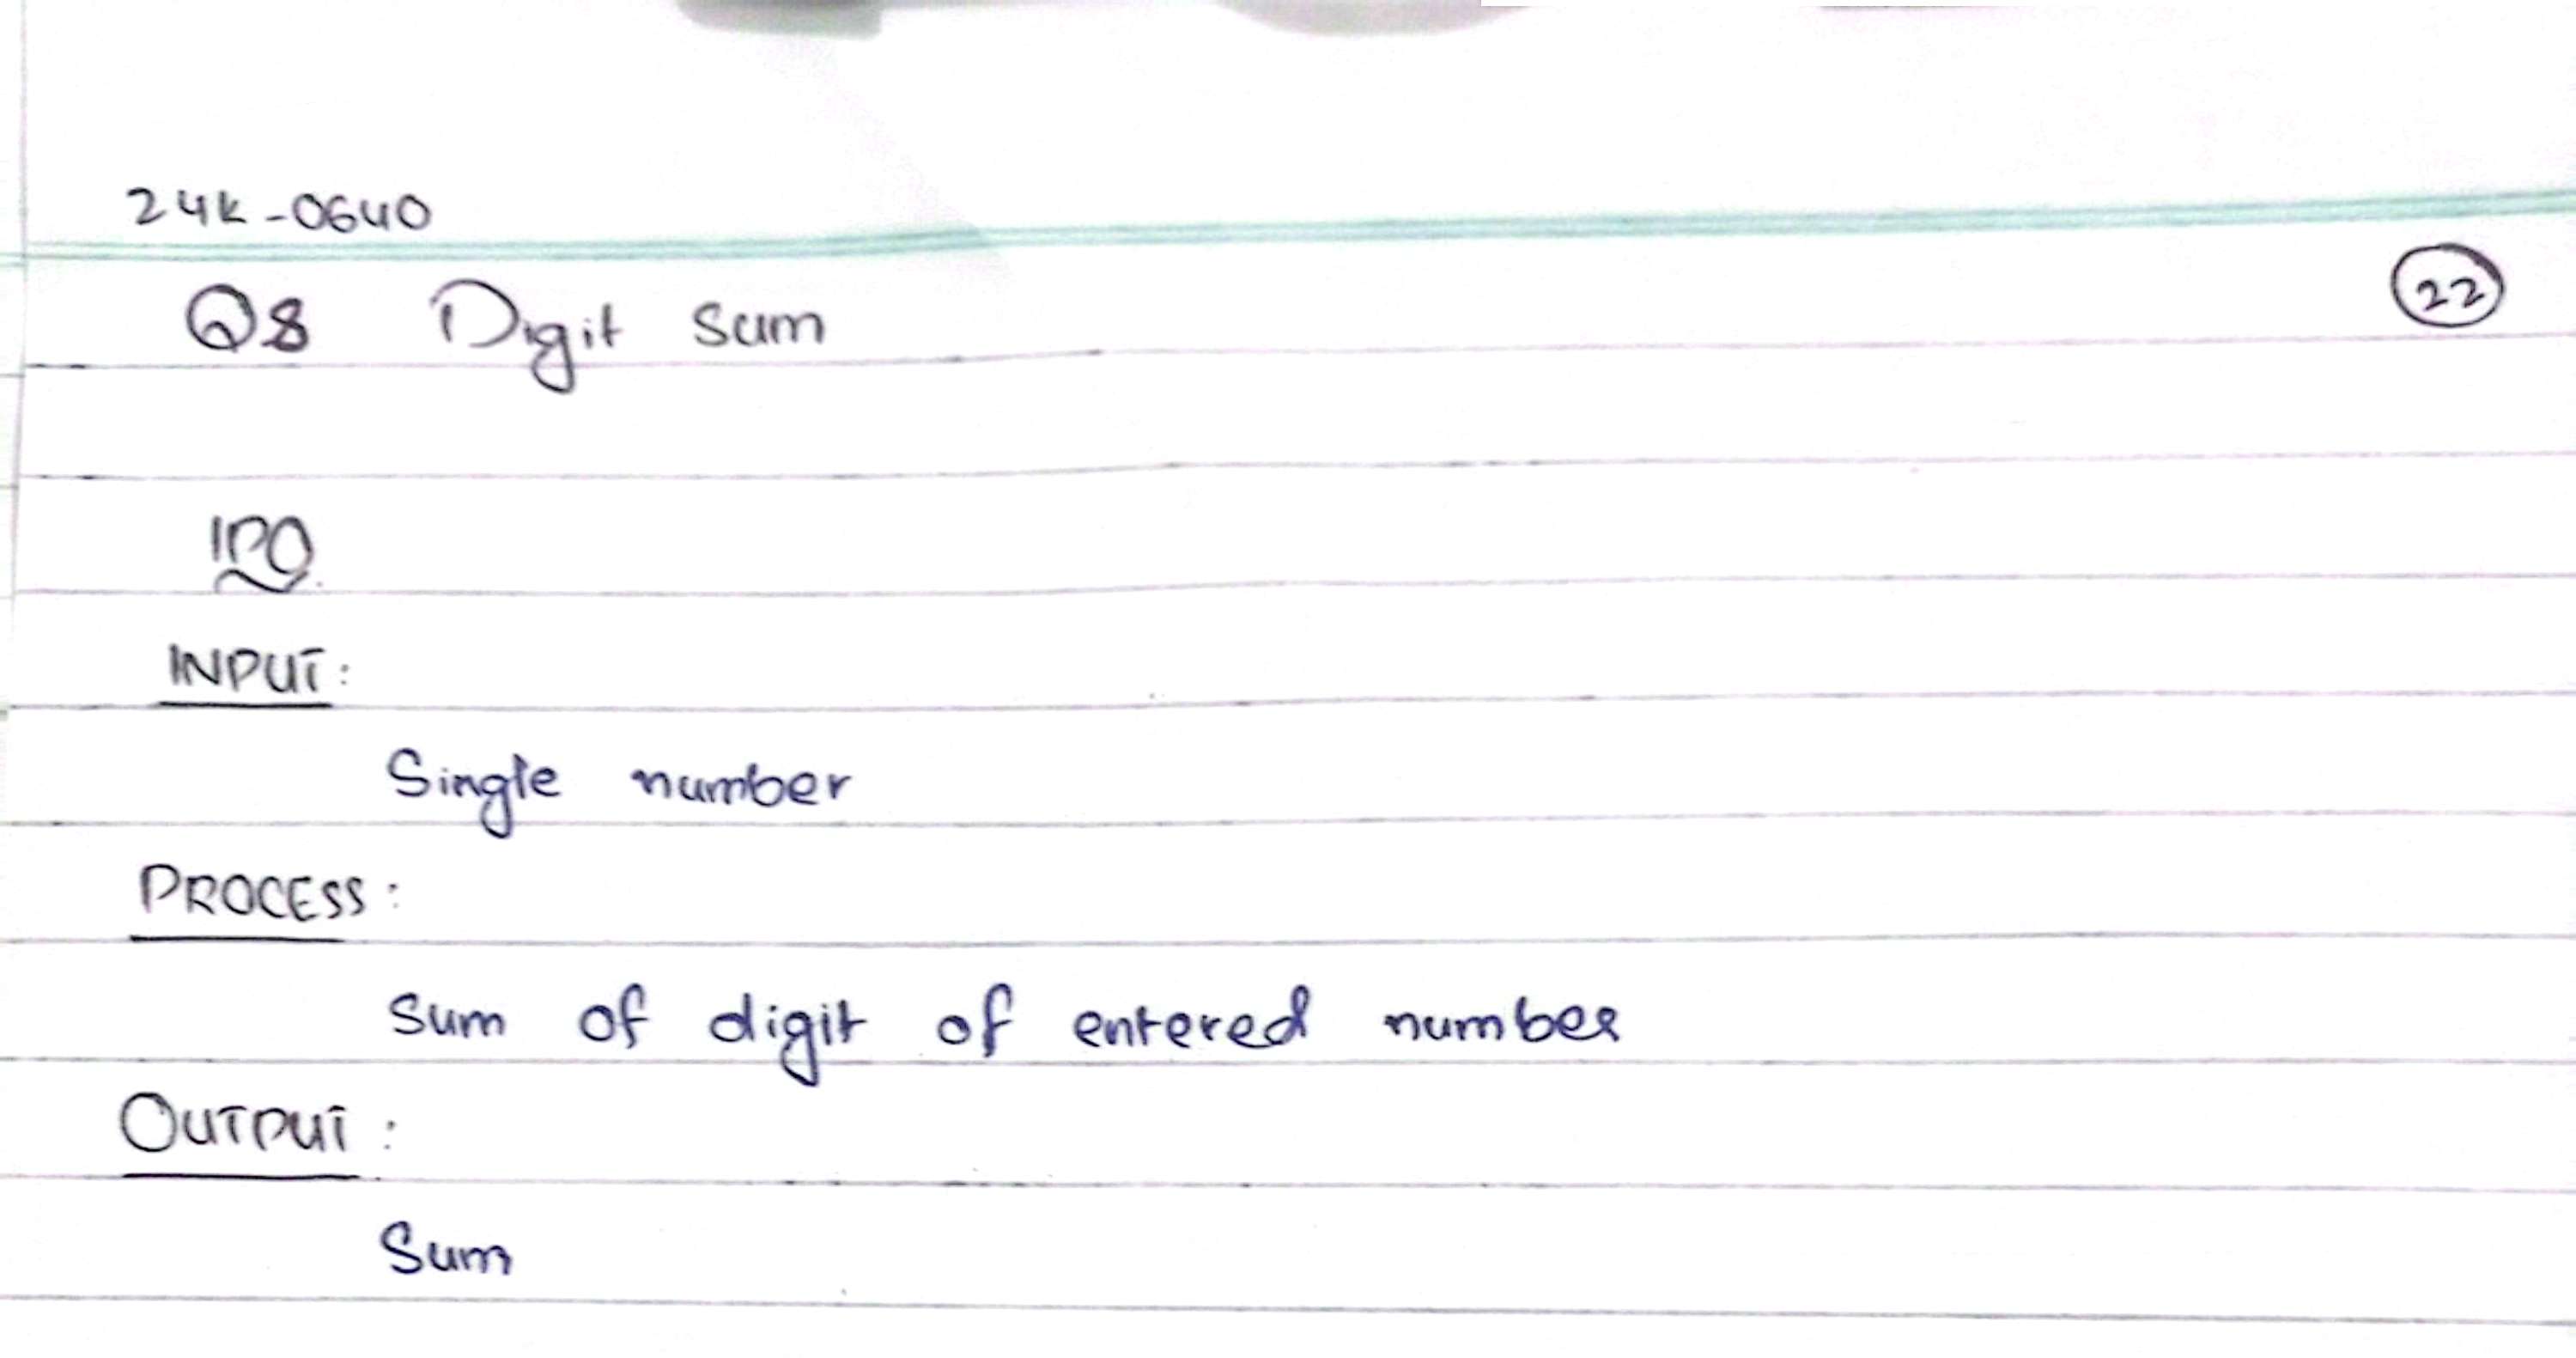 24K-0640
Q8 Digit Sum
22
IPO
INPUT:
Single number
PROCESS:
Sum of digit of entered number
OUTPUT:
Sum